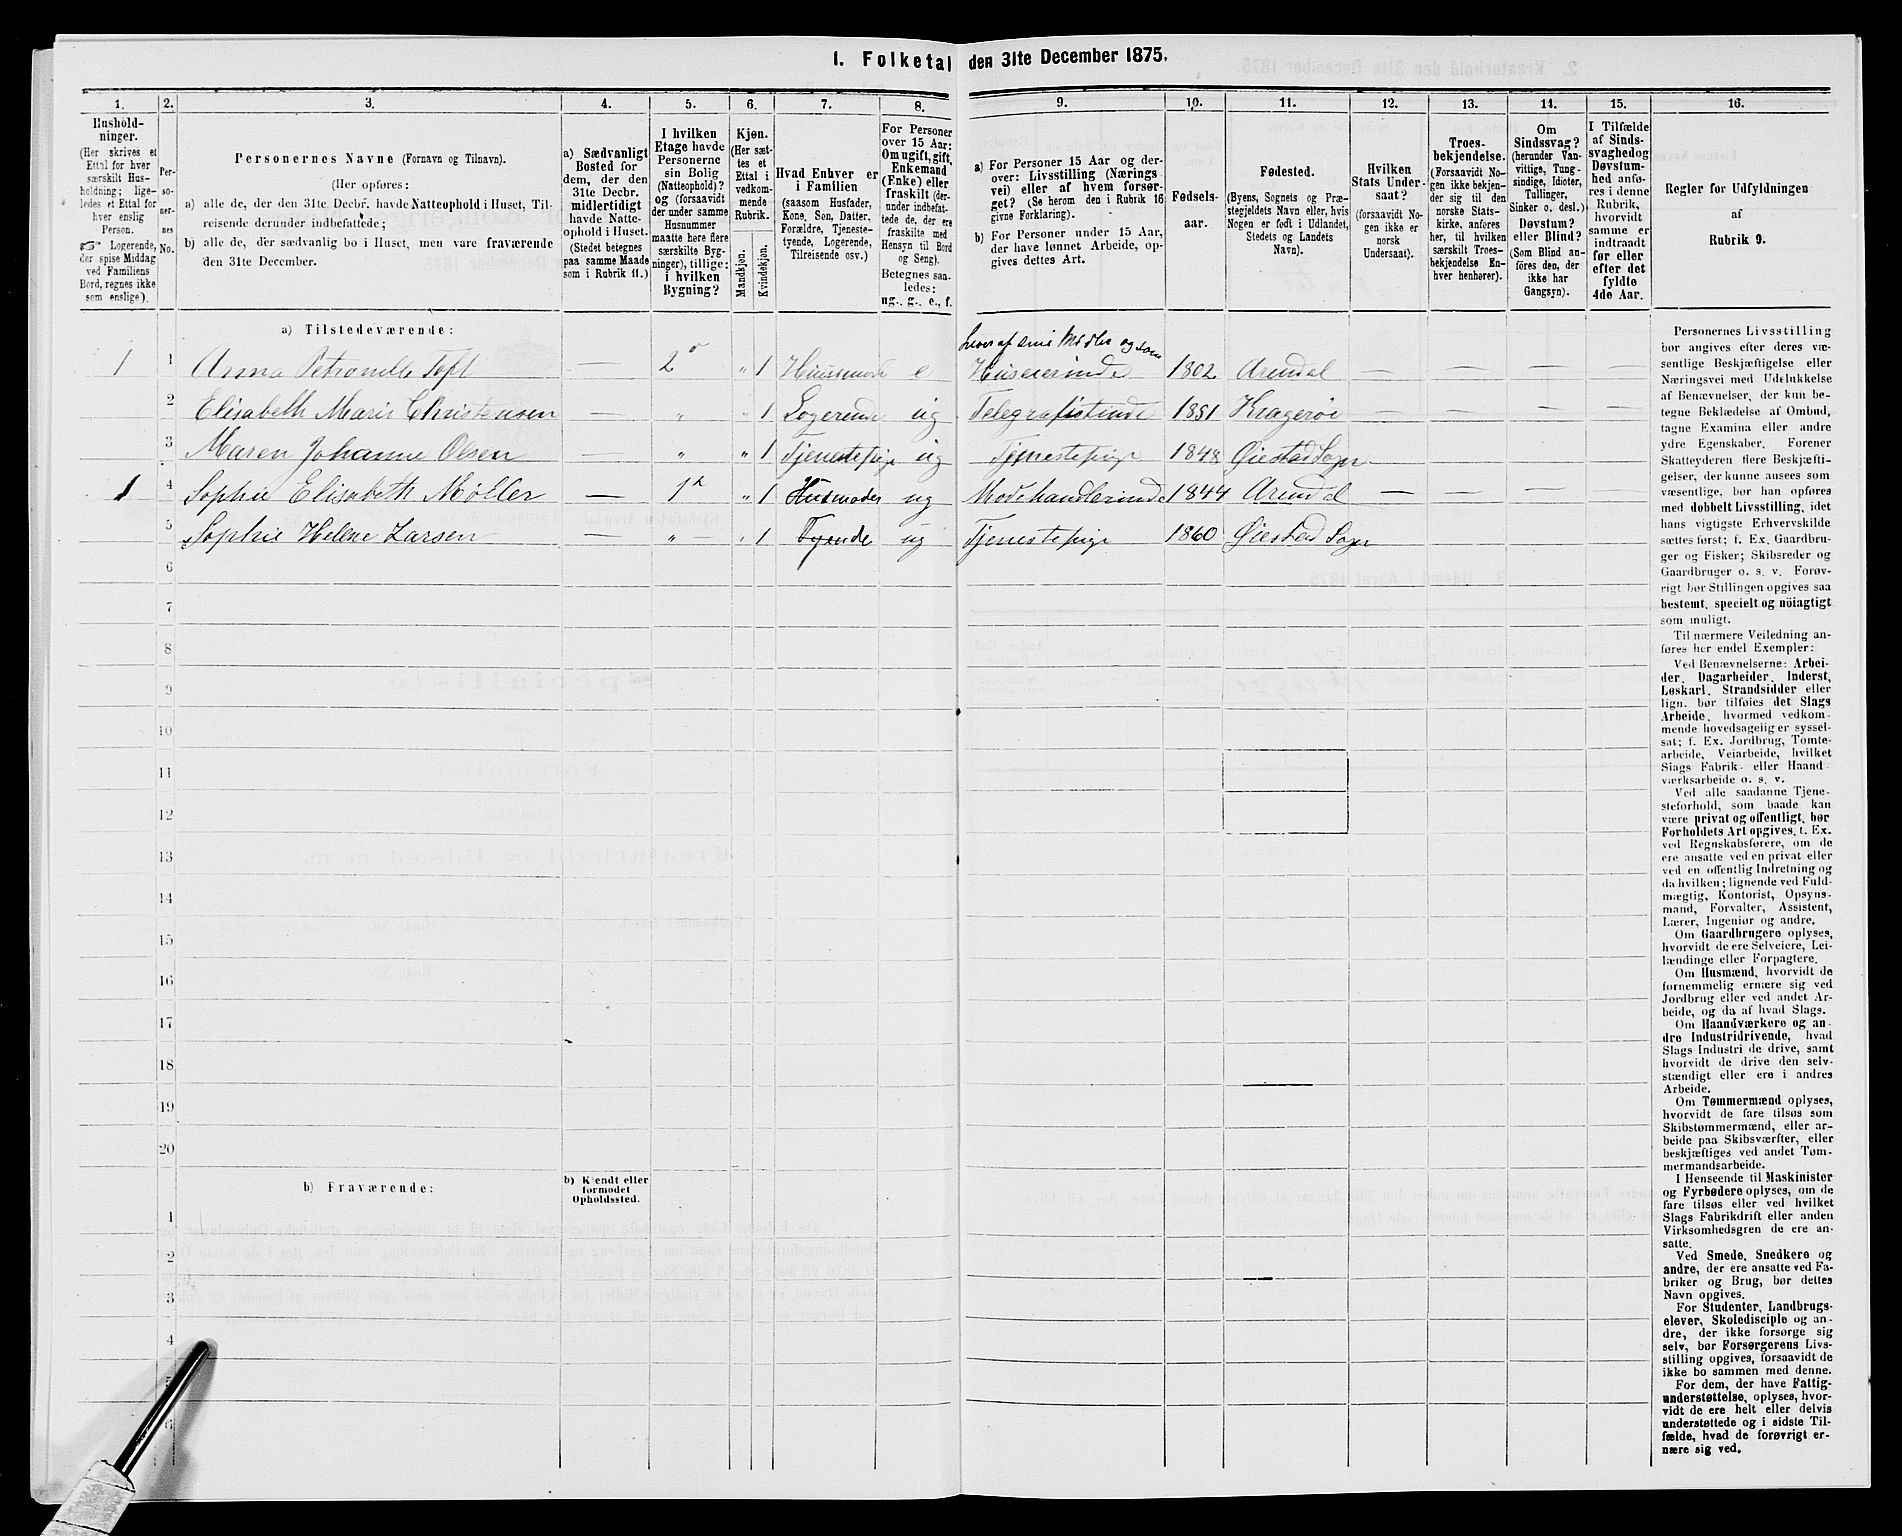 1. Folketal den 31te December 1875.
1.
2.
3.
4.
5.
6.
7.
8.
9.
10.
11.
12.
13.
14.
15.
16.
Hushold-
ninger.
(Her skrives et
Ettal for hver
særskilt Hus-
holdning; lige-
ledes et Ettal for
hver enslig
Person.
☞ Logerende,
der spise Middag
ved Familiens
Bord, regnes ikke
som enslige).
Per-
so-
ner-
nes
No.
Personernes Navne (Fornavn og Tilnavn).
(Her opføres:
a) alle de, der den 31te Decbr. havde Natteophold i Huset, Til-
reisende derunder indbefattede;
b) alle de, der sædvanlig bo i Huset, men vare fraværende
den 31te December.
a) Sædvanligt
Bosted for
dem, der den
31te Decbr.
midlertidigt
havde Natte-
ophold i Huset.
(Stedet betegnes
paa samme Maade
som i Rubrik 11.)
I hvilken
Etage havde
Personerne
sin Bolig
(Natteophold)?
og (forsaavidt
der under samme
Husnummer
maatte høre flere
særskilte Byg-
ninger), tillige:
i hvilken
Bygning?
Kjøn.
(Her sæt-
tes et
Ettal i
vedkom-
mende
Rubrik.
Mandkjøn.
Kvindekjøn.
Hvad Enhver er
i Familien
(saasom Husfader,
Kone, Søn, Datter,
Forældre, Tjeneste-
tyende, Logerende,
Tilreisende osv.)
For Personer
over 15 Aar:
Om ugift, gift,
Enkemand
(Enke) eller
fraskilt (der-
under indbefat-
tede de, der ere
fraskilte med
Hensyn til Bord
og Seng).
Betegnes saa-
ledes:
ug., g., e., f.
a) For Personer 15 Aar og der-
over: Livsstilling (Nærings
vei) eller af hvem forsør-
get? (Se herom den i Rubrik 16
givne Forklaring).
b) For Personer under 15 Aar,
der have lønnet Arbeide, op-
gives dettes Art.
Fødsels-
aar.
Fødested.
(Byens, Sognets og Præ-
stegjeldets Navn eller, hvis
Nogen er født i Udlandet,
Stedets og Landets
Navn).
Hvilken
Stats Under-
saat?
(forsaavidt No-
gen ikke er
norsk
Undersaat).
Troes-
bekjendelse.
(Forsaavidt No-
gen ikke bekjen-
der sig til den
norske Stats-
kirke, anføres
her, til hvilken
særskilt Troes-
bekjendelse En-
hver henhører).
Om
Sindssvag?
(herunder Van-
vittige, Tung-
sindige, Idioter,
Tullinger,
Sinker o. desl.)
Døvstum?
eller Blind?
(Som Blind an-
føres den, der
ikke har
Gangsyn).
I Tilfælde
af Sinds-
svaghed og
Døvstum-
hed anfø-
res i denne
Rubrik,
hvorvidt
samme er
indtraadt
før eller
efter det
fyldte
4de Aar.
Regler for Udfyldningen
af
Rubrik 9.
a) Tilstedeværende:
Lever af sine Midler og som
1 1 Anna Petronille Toft — 2 " 1 Huusmode e Huseierinde 1802 Arendal — — — —
2 Elisabeth Marie Christensen — " " 1 Logerende ug Telegrafistinde 1851 Kragerøe — — — —
3 Maren Johanne Olsen — " " 1 Tjenestepige ug Tjenestepige 1848 Øiestad Sogn
1 4 Sophie Elisabeth Møller — 1 " 1 Husmoder ug Modehandlerinde 1844 Arendal — — — —
5 Sophie Helene Larsen — " — " 1 Tyende ug Tjenestepige 1860 Øiestad Sogn
6
7
8
9
10
11
12
13
14
15
16
17
18
19
20
b) Fraværende:
b) Kjendt eller
formodet
Opholdssted.
1
2
3
4
5
6
Personernes Livsstilling
bør angives efter deres væ-
sentlige Beskjæftigelse eller
Næringsvei med Udelukkelse
af Benævnelser, der kun be-
tegne Beklædelse af Ombud,
tagne Examina eller andre
ydre Egenskaber. Forener
Skatteyderen flere Beskjæfti-
gelser, der kunne ansees som
væsentlige, bør han opføres
med dobbelt Livsstilling, idet
hans vigtigste Erhvervskilde
sættes først; f. Ex. Gaardbru-
ger og Fisker; Skibsreder og
Gaardbruger o. s. v. Forøv-
rigt bør Stillingen opgives saa
bestemt, specielt og nöiagtigt
som muligt.
Til nærmere Veiledning an-
føres her endel Exempler:
Ved Benævnelserne: Arbei-
der, Dagarbeider, Inderst,
Løskarl, Strandsidder eller
lign. bør tilføies det Slags
Arbeide, hvormed vedkom-
mende hovedsagelig er syssel-
sat; f. Ex. Jordbrug, Tomte-
arbeide, Veiarbeide, hvilket
Slags Fabrik- eller Haand-
værksarbeide o. s. v.
Ved alle saadanne Tjene-
steforhold, som baade kan
være privat og offentligt, bør
Forholdets Art opgives, t. Ex.
ved Regnskabsførere, om de
ere ansatte ved en privat eller
ved en offentlig Indretning og
da hvilken; lignende ved Fuld-
mægtig, Kontorist, Opsyns-
mand, Forvalter, Assistent,
Lærer, Ingeniør og andre.
Om Gaardbrugere oplyses,
hvorvidt de ere Selveiere, Lei-
lændinge eller Forpagtere.
Om Husmænd, hvorvidt de
fornemmelig ernære sig ved
Jordbrug eller ved andet Ar-
beide, og da af hvad Slags.
Om Haandværkere og an-
dre Industridrivende, hvad
Slags Industri de drive, samt
hvorvidt de drive den selv-
stændigt eller ere i andres
Arbeide.
Om Tømmermænd oplyses,
hvorvidt de fare tilsøs som
Skibstømmermænd, eller ar-
beide paa Skibsværfter, eller
beskjæftiges ved andet Tøm-
mermandsarbeide.
I Henseende til Maskinister
og Fyrbødere oplyses, om de
fare tilsøs eller ved hvilket
Slags Fabrikdrift eller anden
Virksomhedsgren de ere an-
satte.
Ved Smede, Snedkere og
andre, der ere ansatte ved Fa-
briker og Brug, bør dettes
Navn opgives.
For Studenter, Landbrugs-
elever, Skoledisciple og an-
dre, der ikke forsørge sig
selv, bør Forsørgerens Livs-
stilling opgives, forsaavidt de
ikke bo sammen med denne.
For dem, der have Fattig-
understøttelse, oplyses, hvor-
vidt de ere helt eller delvis
understøttede og i sidste Til-
fælde, hvad de forøvrigt er-
nære sig ved.